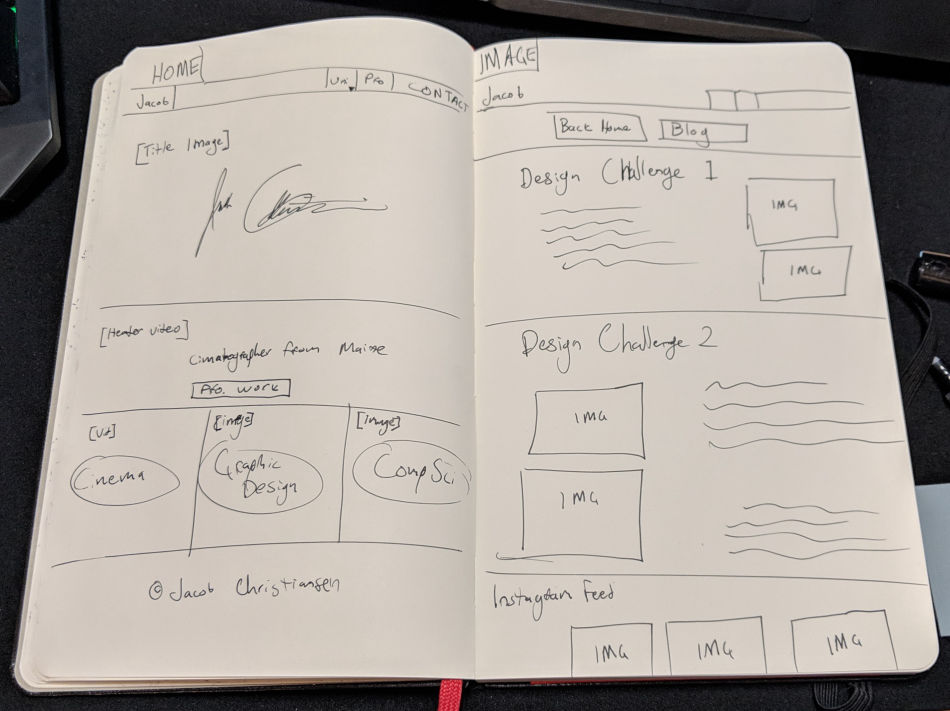 HOME
Jacob
Uni
Pro
CONTACT
[Title Image]
[Header video]
Cimatographer from Maine
Pro. work
[Vid]
[image]
[Image]
Cinema
Graphic
Design
CompSci
© Jacob Christiansen
IMAGE
Jacob
Back Home
Blog
Design Challenge 1
IMG
IMG
Design Challenge 2
IMG
IMG
Instagram Feed
IMG
IMG
IMG